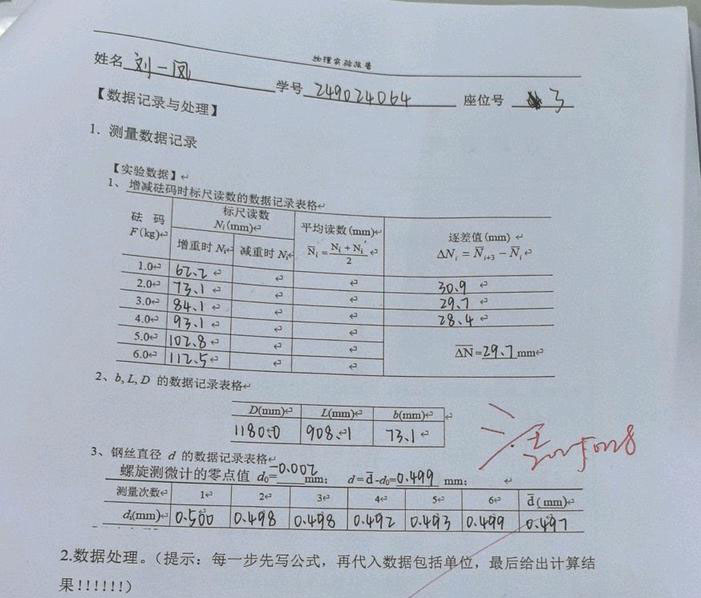 物理实验报告
姓名 刘一凤 学号 249024064 座位号 3
【数据记录与处理】
1. 测量数据记录
【实验数据】
1、增减砝码时标尺读数的数据记录表格
砝 码 F(kg) 标尺读数 Ni(mm) 平均读数(mm) N̄i = (Ni + Ni')/2 逐差值(mm) ΔNi = N̄i+3 − N̄i
增重时 Ni 减重时 Ni
1.0 62.2
2.0 73.1 30.9
3.0 84.1 29.7
4.0 93.1 28.4
5.0 102.8
6.0 112.5
ΔN̄=29.7mm
2、b, L, D 的数据记录表格
D(mm) L(mm) b(mm)
1180.0 908.1 73.1
3、钢丝直径 d 的数据记录表格
螺旋测微计的零点值 d0=-0.002mm; d=d̄-d0=0.499 mm;
测量次数 1 2 3 4 5 6 d̄(mm)
di(mm) 0.500 0.498 0.498 0.492 0.493 0.499 0.497
2.数据处理。（提示：每一步先写公式，再代入数据包括单位，最后给出计算结
果!!!!!!）